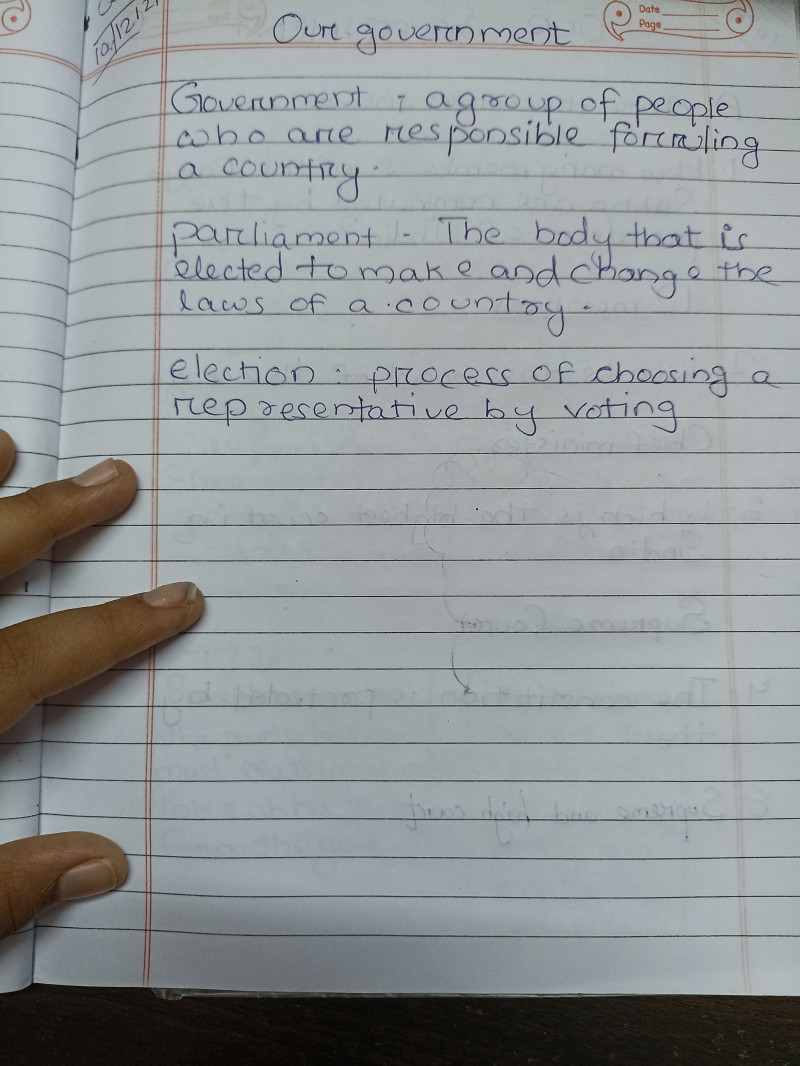 Date
Page
Our government
Government : a group of people
who are responsible for ruling
a country.
parliament - The body that is
elected to make and change the
laws of a country.
election : process of choosing a
representative by voting